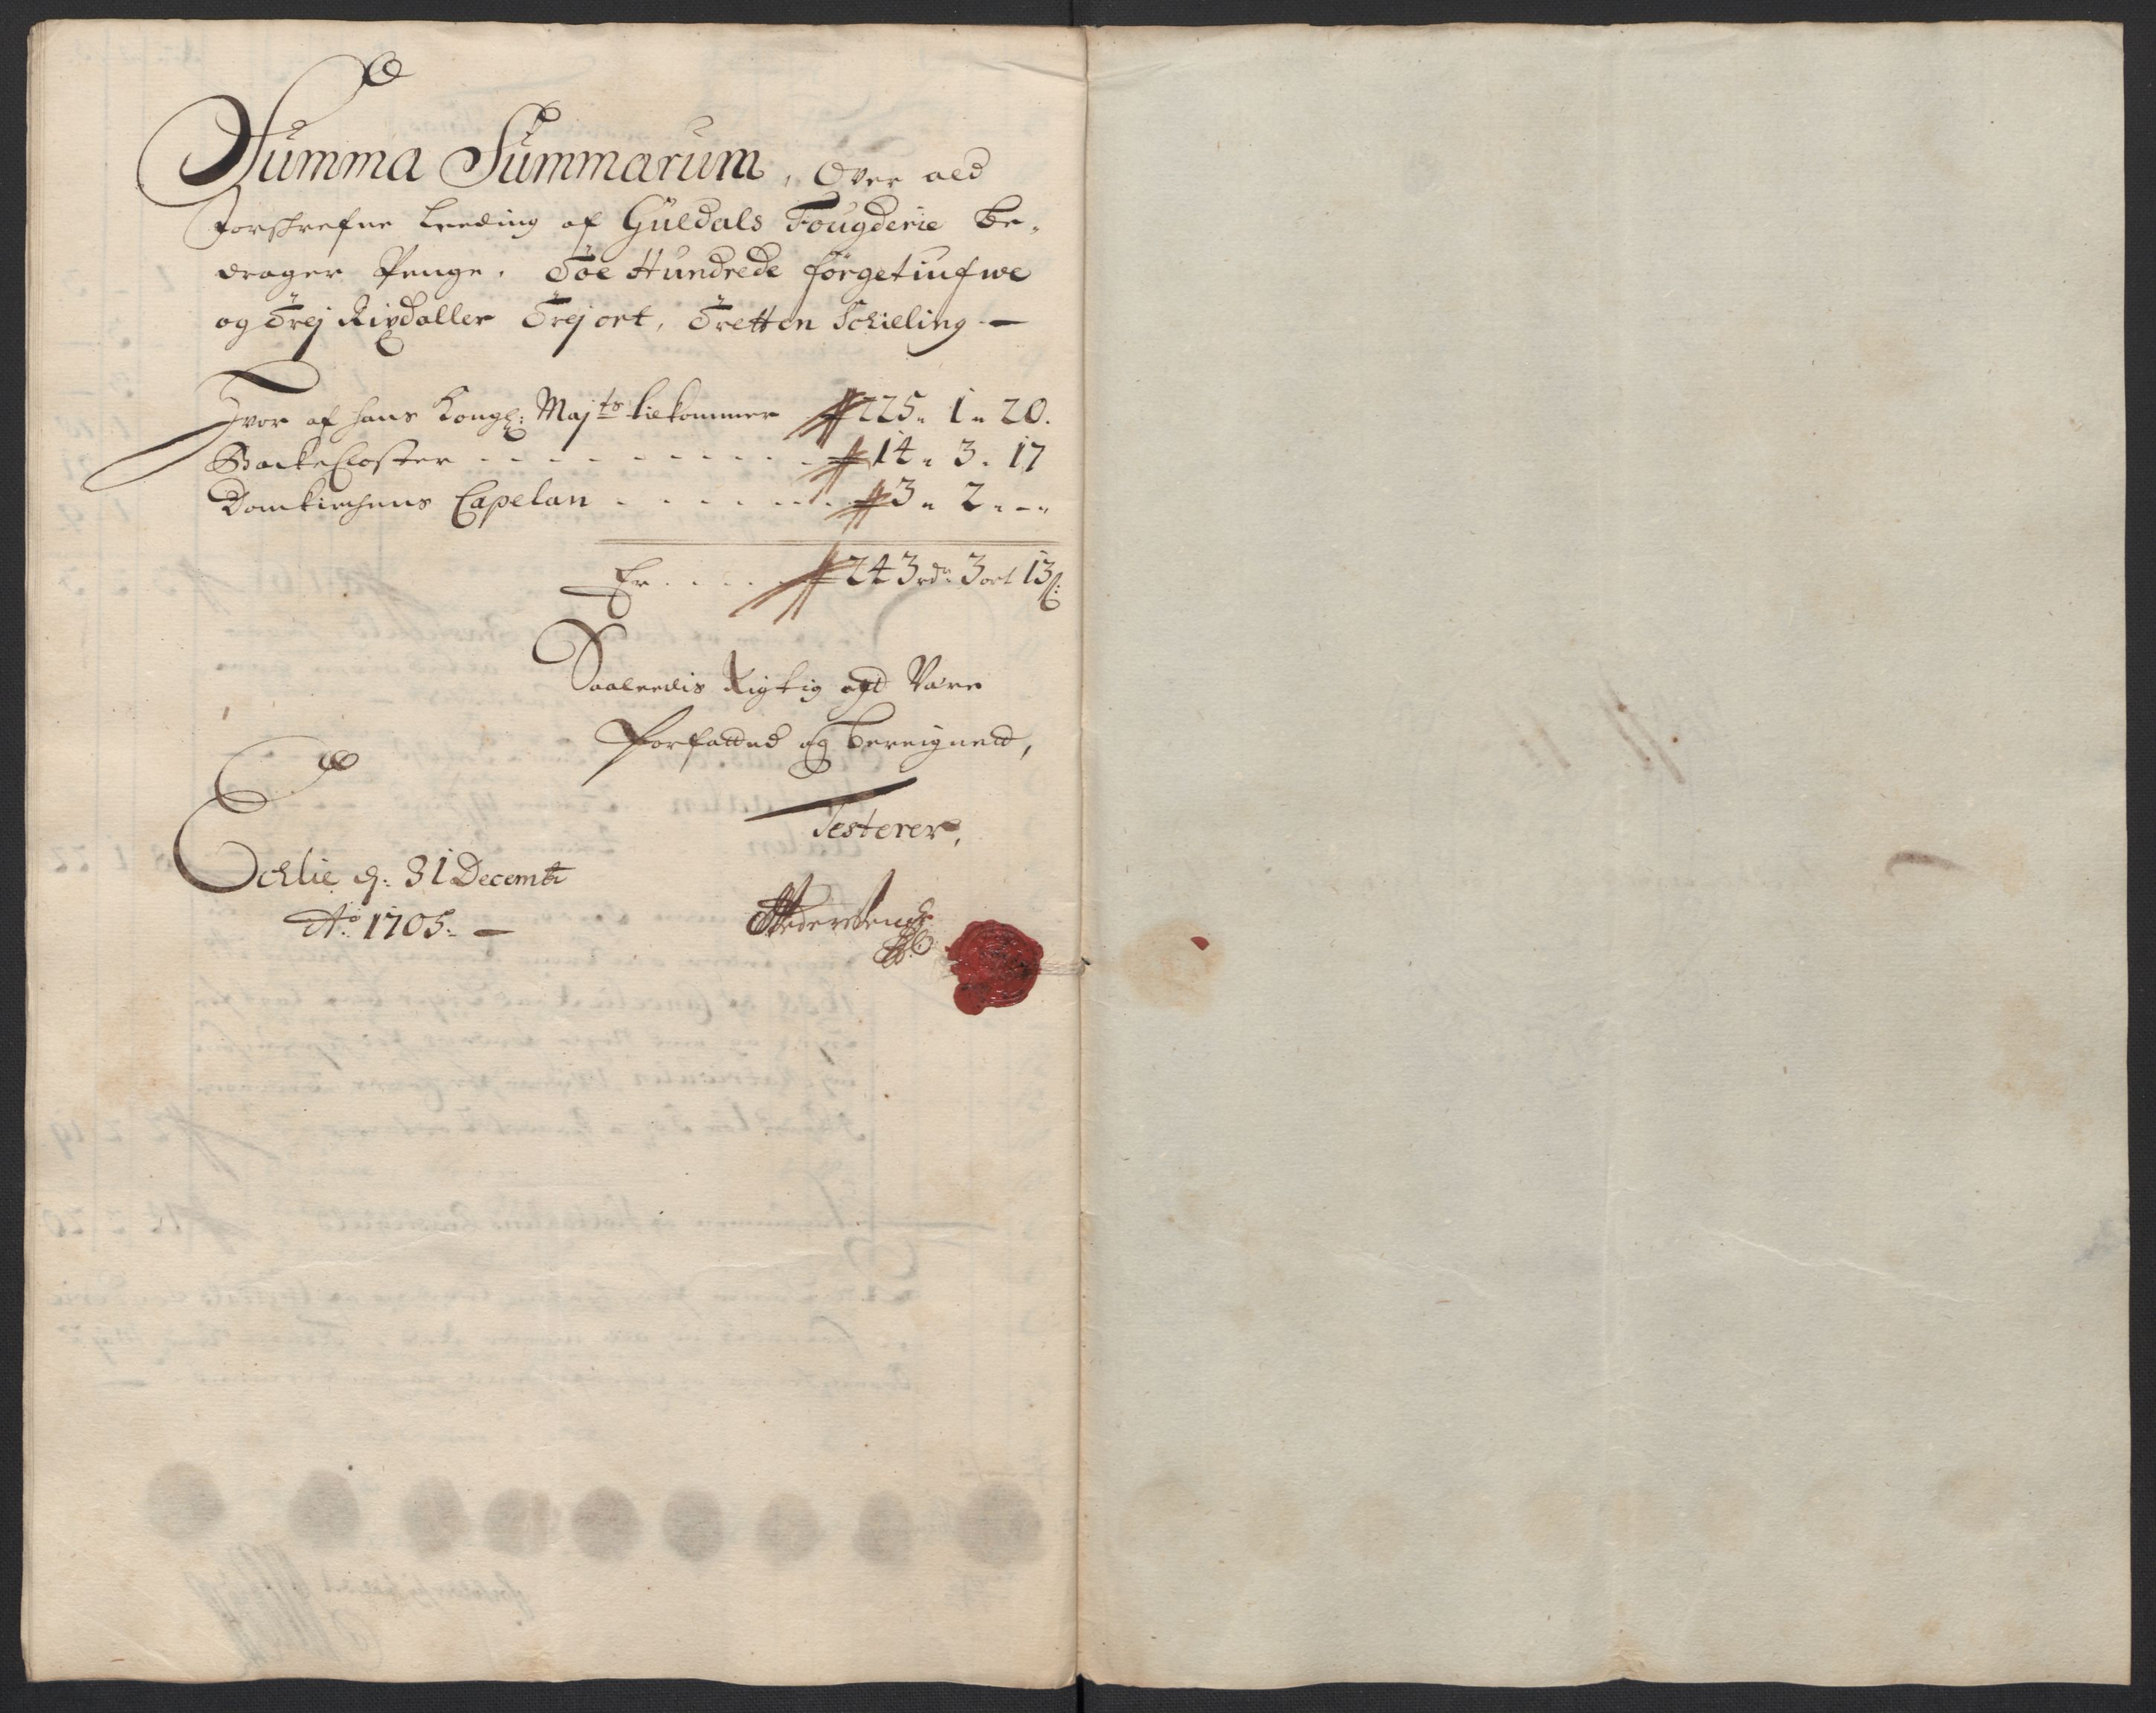 Summa Summarum, Over ald
forschrefne Leeding af Guldals Fougderie be„
drager Penge, Toe Hundrede førgetiufwe
og Trej Rixdaller Trej ort, Tretten Schilling —
Hvor af hans Kongl: Majts tilkommer 225„ 1„ 20.
BackeCloster - - - - - - - - - - 14„ 3. 17
Domkirchens Capelan - - - - - - - 3„ 2„ -„
Er - - - - 243 rdr 3 ort 13 s:
Saaledis Rigtig at Være
forfatted og bereigned,
Testerer,
Echlie d: 31 Decembr
Ao 1705. —